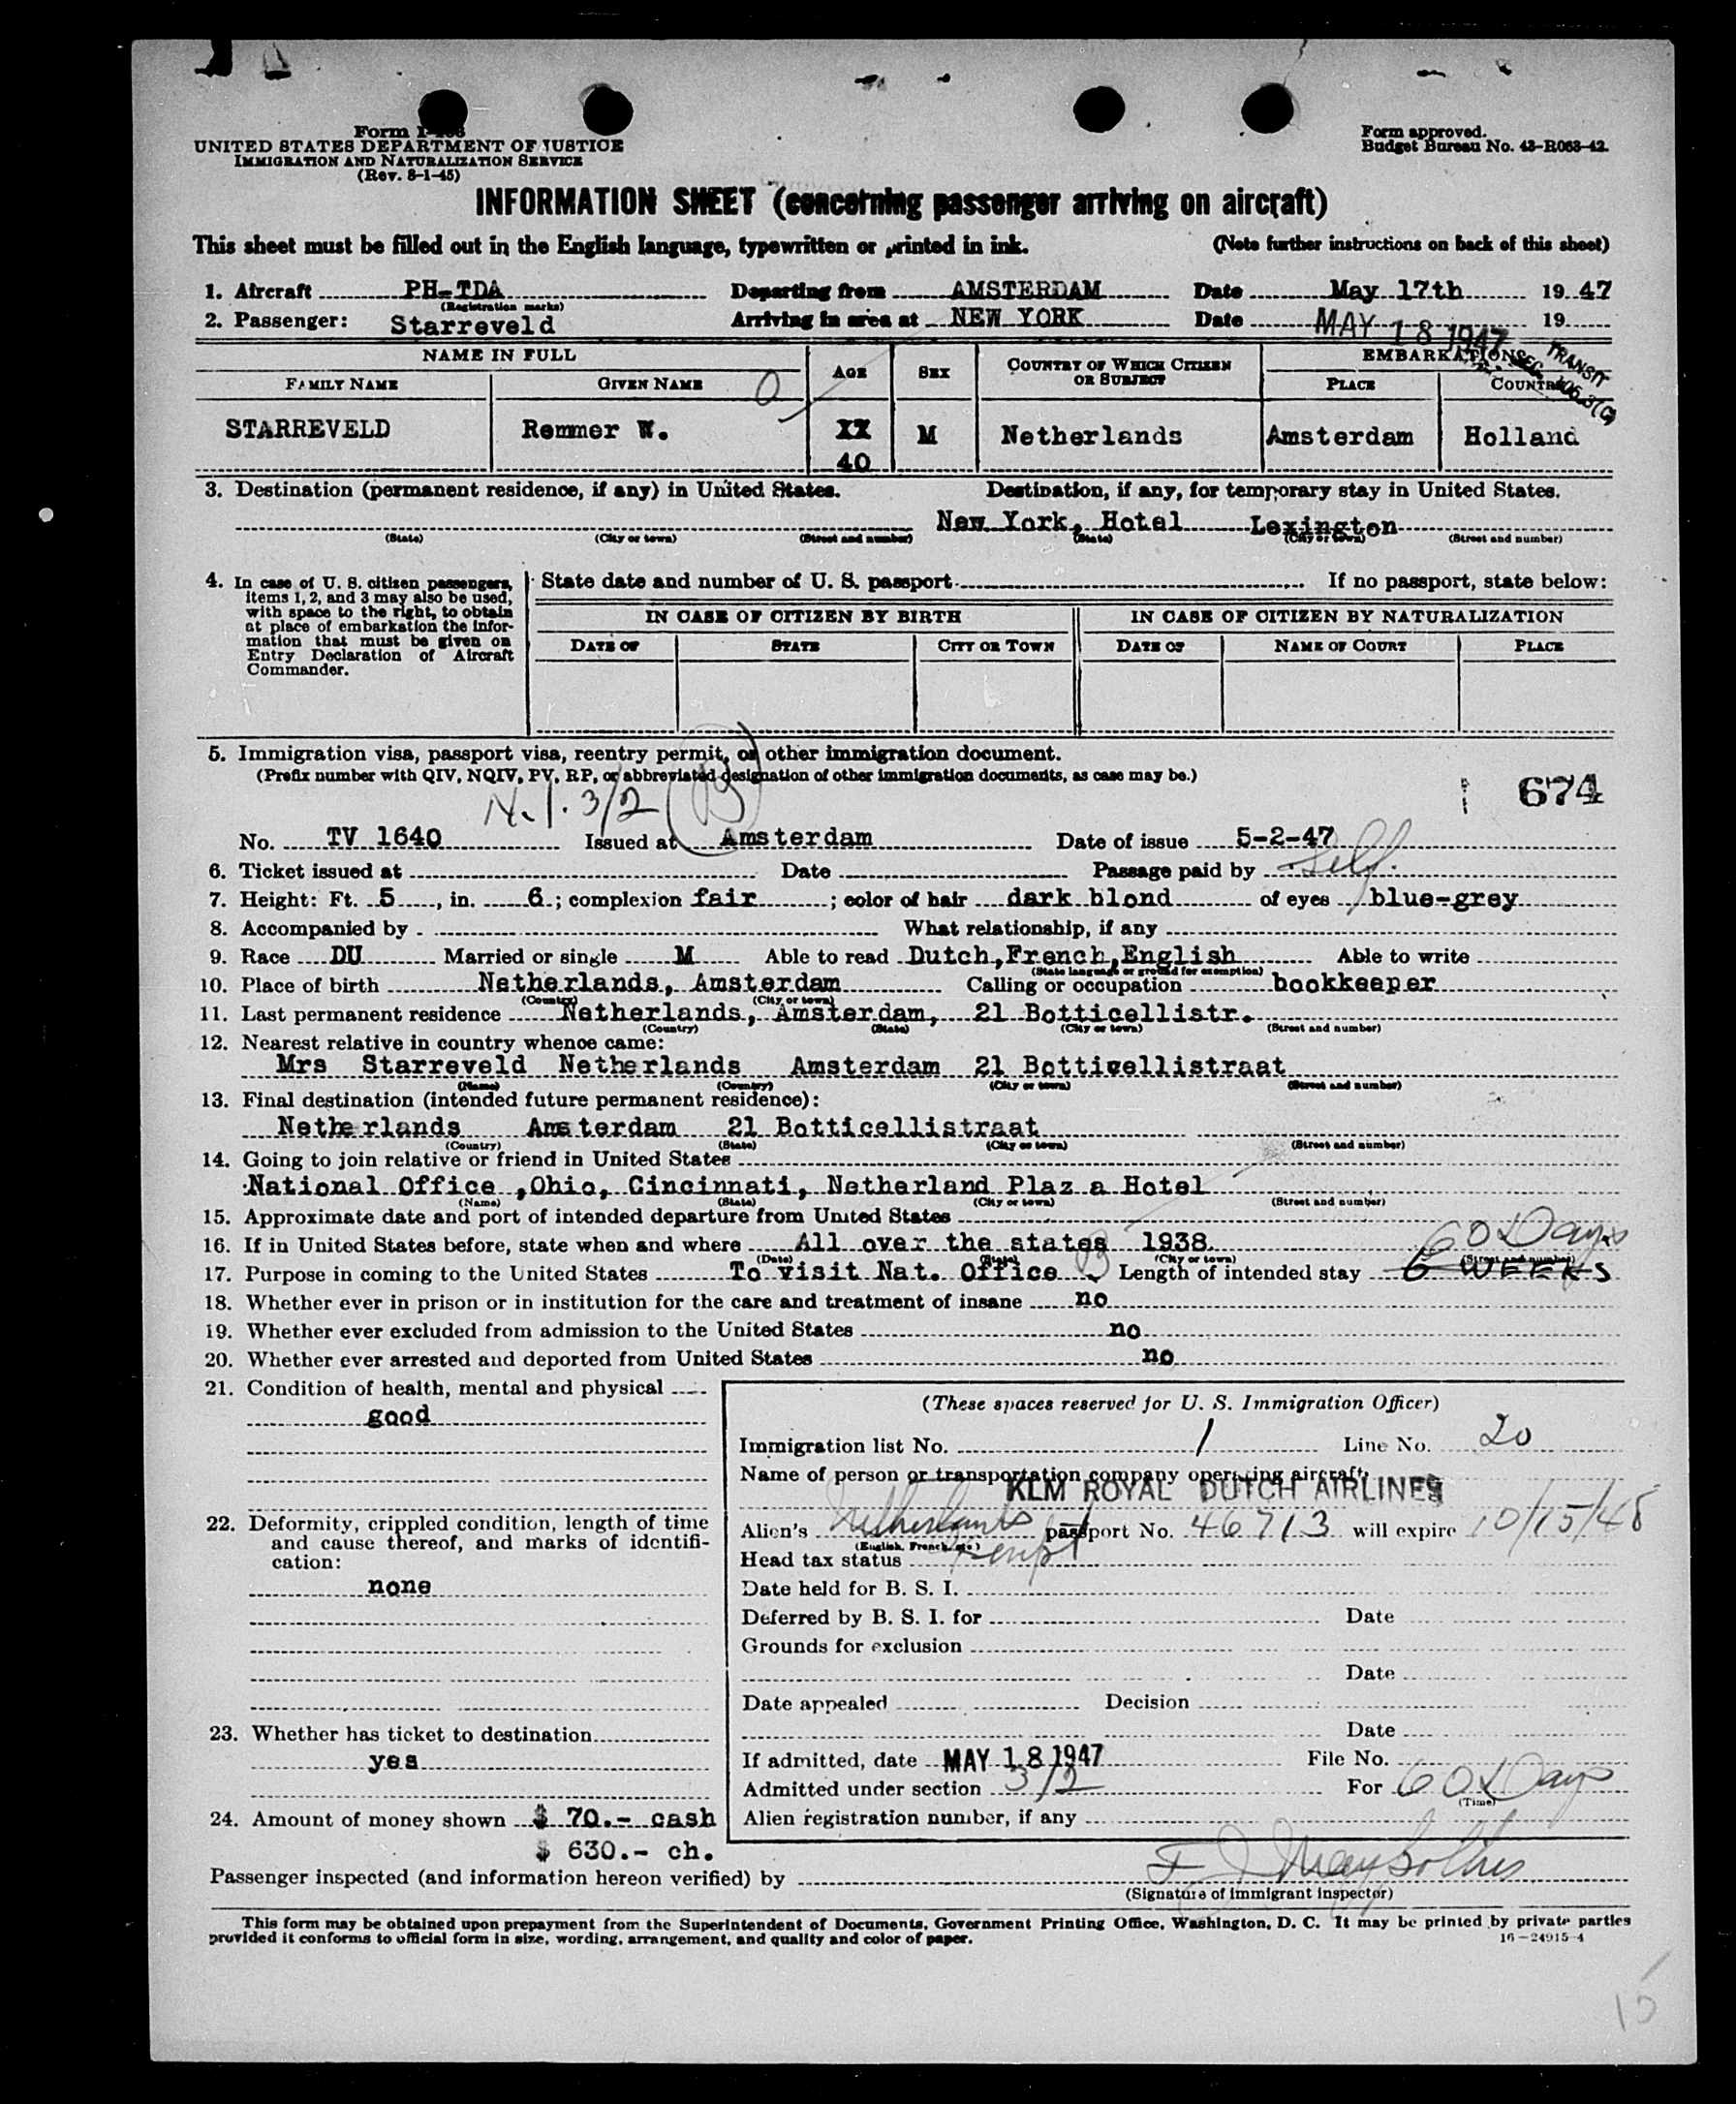 Form I-466
UNITED STATES DEPARTMENT OF JUSTICE
IMMIGRATION AND NATURALIZATION SERVICE
(Rev. 8-1-45)
Form approved.
Budget Bureau No. 43-R063-42.
INFORMATION SHEET (concerning passenger arriving on aircraft)
This sheet must be filled out in the English language, typewritten or printed in ink. (Note further instructions on back of this sheet)
1. Aircraft PH-TDA Departing from AMSTERDAM Date May 17th 19 47
(Registration marks)
2. Passenger: Starreveld Arriving in area at NEW YORK Date MAY 18 1947 19
TRANSIT
SEC.
NAME IN FULL AGE SEX COUNTRY OF WHICH CITIZEN OR SUBJECT EMBARKATION
FAMILY NAME GIVEN NAME PLACE COUNTRY
STARREVELD Remmer W. XX M Netherlands Amsterdam Holland
40
3. Destination (permanent residence, if any) in United States. Destination, if any, for temporary stay in United States.
New York, Hotel Lexington
(State) (City or town) (Street and number) (State) (City or town) (Street and number)
4. In case of U. S. citizen passengers, items 1, 2, and 3 may also be used, with space to the right, to obtain at place of embarkation the information that must be given on Entry Declaration of Aircraft Commander.
State date and number of U. S. passport If no passport, state below:
IN CASE OF CITIZEN BY BIRTH IN CASE OF CITIZEN BY NATURALIZATION
DATE OF STATE CITY OR TOWN DATE OF NAME OF COURT PLACE
5. Immigration visa, passport visa, reentry permit, or other immigration document.
(Prefix number with QIV, NQIV, PV, RP, or abbreviated designation of other immigration documents, as case may be.)
3/2
674
No. TV 1640 Issued at Amsterdam Date of issue 5-2-47
6. Ticket issued at Date Passage paid by Self.
7. Height: Ft. 5, in. 6; complexion fair; color of hair dark blond of eyes blue-grey
8. Accompanied by What relationship, if any
9. Race DU Married or single M Able to read Dutch,French,English Able to write
(State language or ground for exemption)
10. Place of birth Netherlands, Amsterdam Calling or occupation bookkeeper
(Country) (City or town)
11. Last permanent residence Netherlands, Amsterdam, 21 Botticellistr.
(Country) (State) (City or town) (Street and number)
12. Nearest relative in country whence came:
Mrs Starreveld Netherlands Amsterdam 21 Botticellistraat
(Name) (Country) (City or town) (Street and number)
13. Final destination (intended future permanent residence):
Netherlands Amsterdam 21 Botticellistraat
(Country) (State) (City or town) (Street and number)
14. Going to join relative or friend in United States
National Office ,Ohio, Cincinnati, Netherland Plaz a Hotel
(Name) (State) (City or town) (Street and number)
15. Approximate date and port of intended departure from United States
60 Days
16. If in United States before, state when and where All over the states 1938.
(Date) (State) (City or town) (Street and number)
17. Purpose in coming to the United States To visit Nat. Office Length of intended stay 6 WEEKS
18. Whether ever in prison or in institution for the care and treatment of insane no
19. Whether ever excluded from admission to the United States no
20. Whether ever arrested and deported from United States no
21. Condition of health, mental and physical
good
22. Deformity, crippled condition, length of time and cause thereof, and marks of identification:
none
23. Whether has ticket to destination
yes
24. Amount of money shown $ 70.- cash
$ 630.- ch.
(These spaces reserved for U. S. Immigration Officer)
Immigration list No. 1 Line No. 20
Name of person or transportation company operating aircraft
KLM ROYAL DUTCH AIRLINES
Alien's Netherlands passport No. 46713 will expire 10/15/48
(English, French, etc.)
Head tax status Exempt
Date held for B. S. I.
Deferred by B. S. I. for Date
Grounds for exclusion
Date
Date appealed Decision
Date
If admitted, date MAY 18 1947 File No.
Admitted under section 3/2 For 60 Days
(Time)
Alien registration number, if any
Passenger inspected (and information hereon verified) by
(Signature of immigrant inspector)
This form may be obtained upon prepayment from the Superintendent of Documents, Government Printing Office, Washington, D. C. It may be printed by private parties
provided it conforms to official form in size, wording, arrangement, and quality and color of paper. 16—24915-4
15